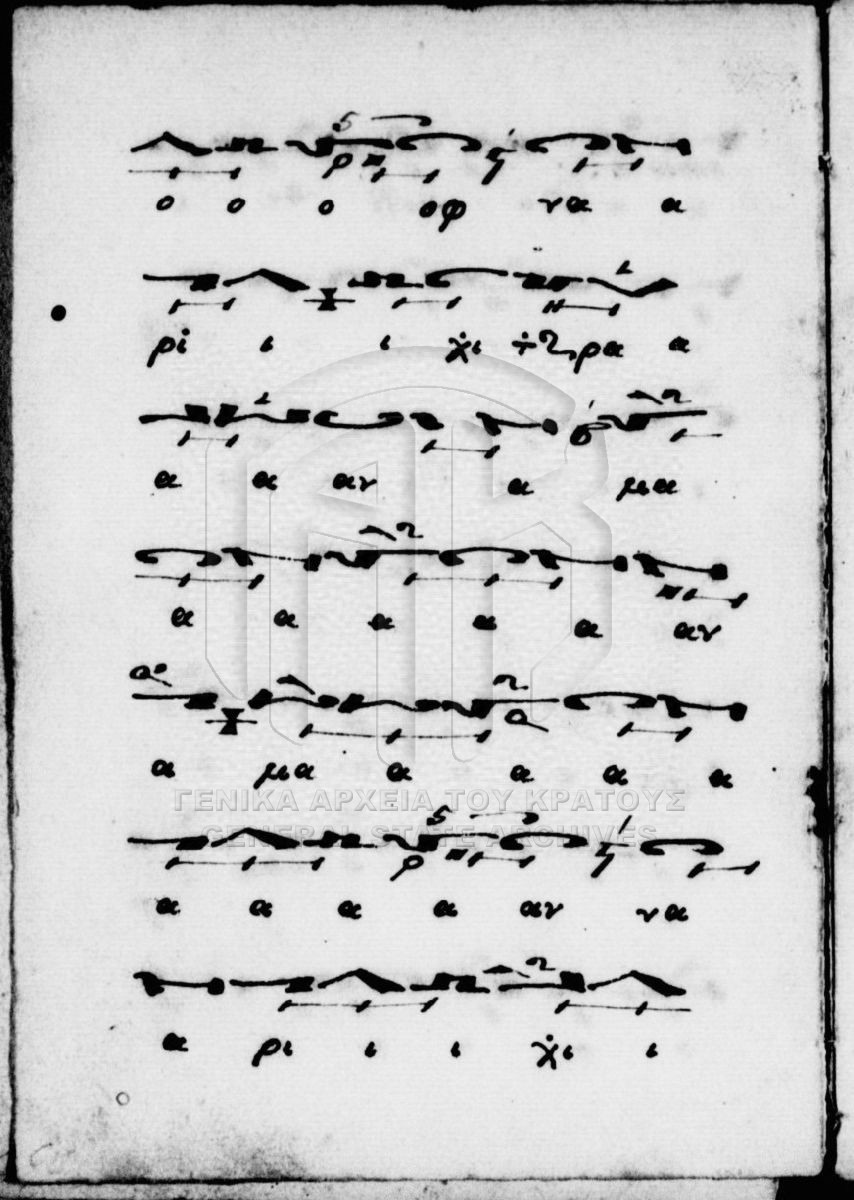 ο ο ο οφ να α
ρι ι ι χι ρα α
α α αν α μα
α α α α α αν
α μα α α α α
ΓΕΝΙΚΑ ΑΡΧΕΙΑ ΤΟΥ ΚΡΑΤΟΥΣ
GENERAL STATE ARCHIVES
α α α α αν να
α ρι ι ι χι ι